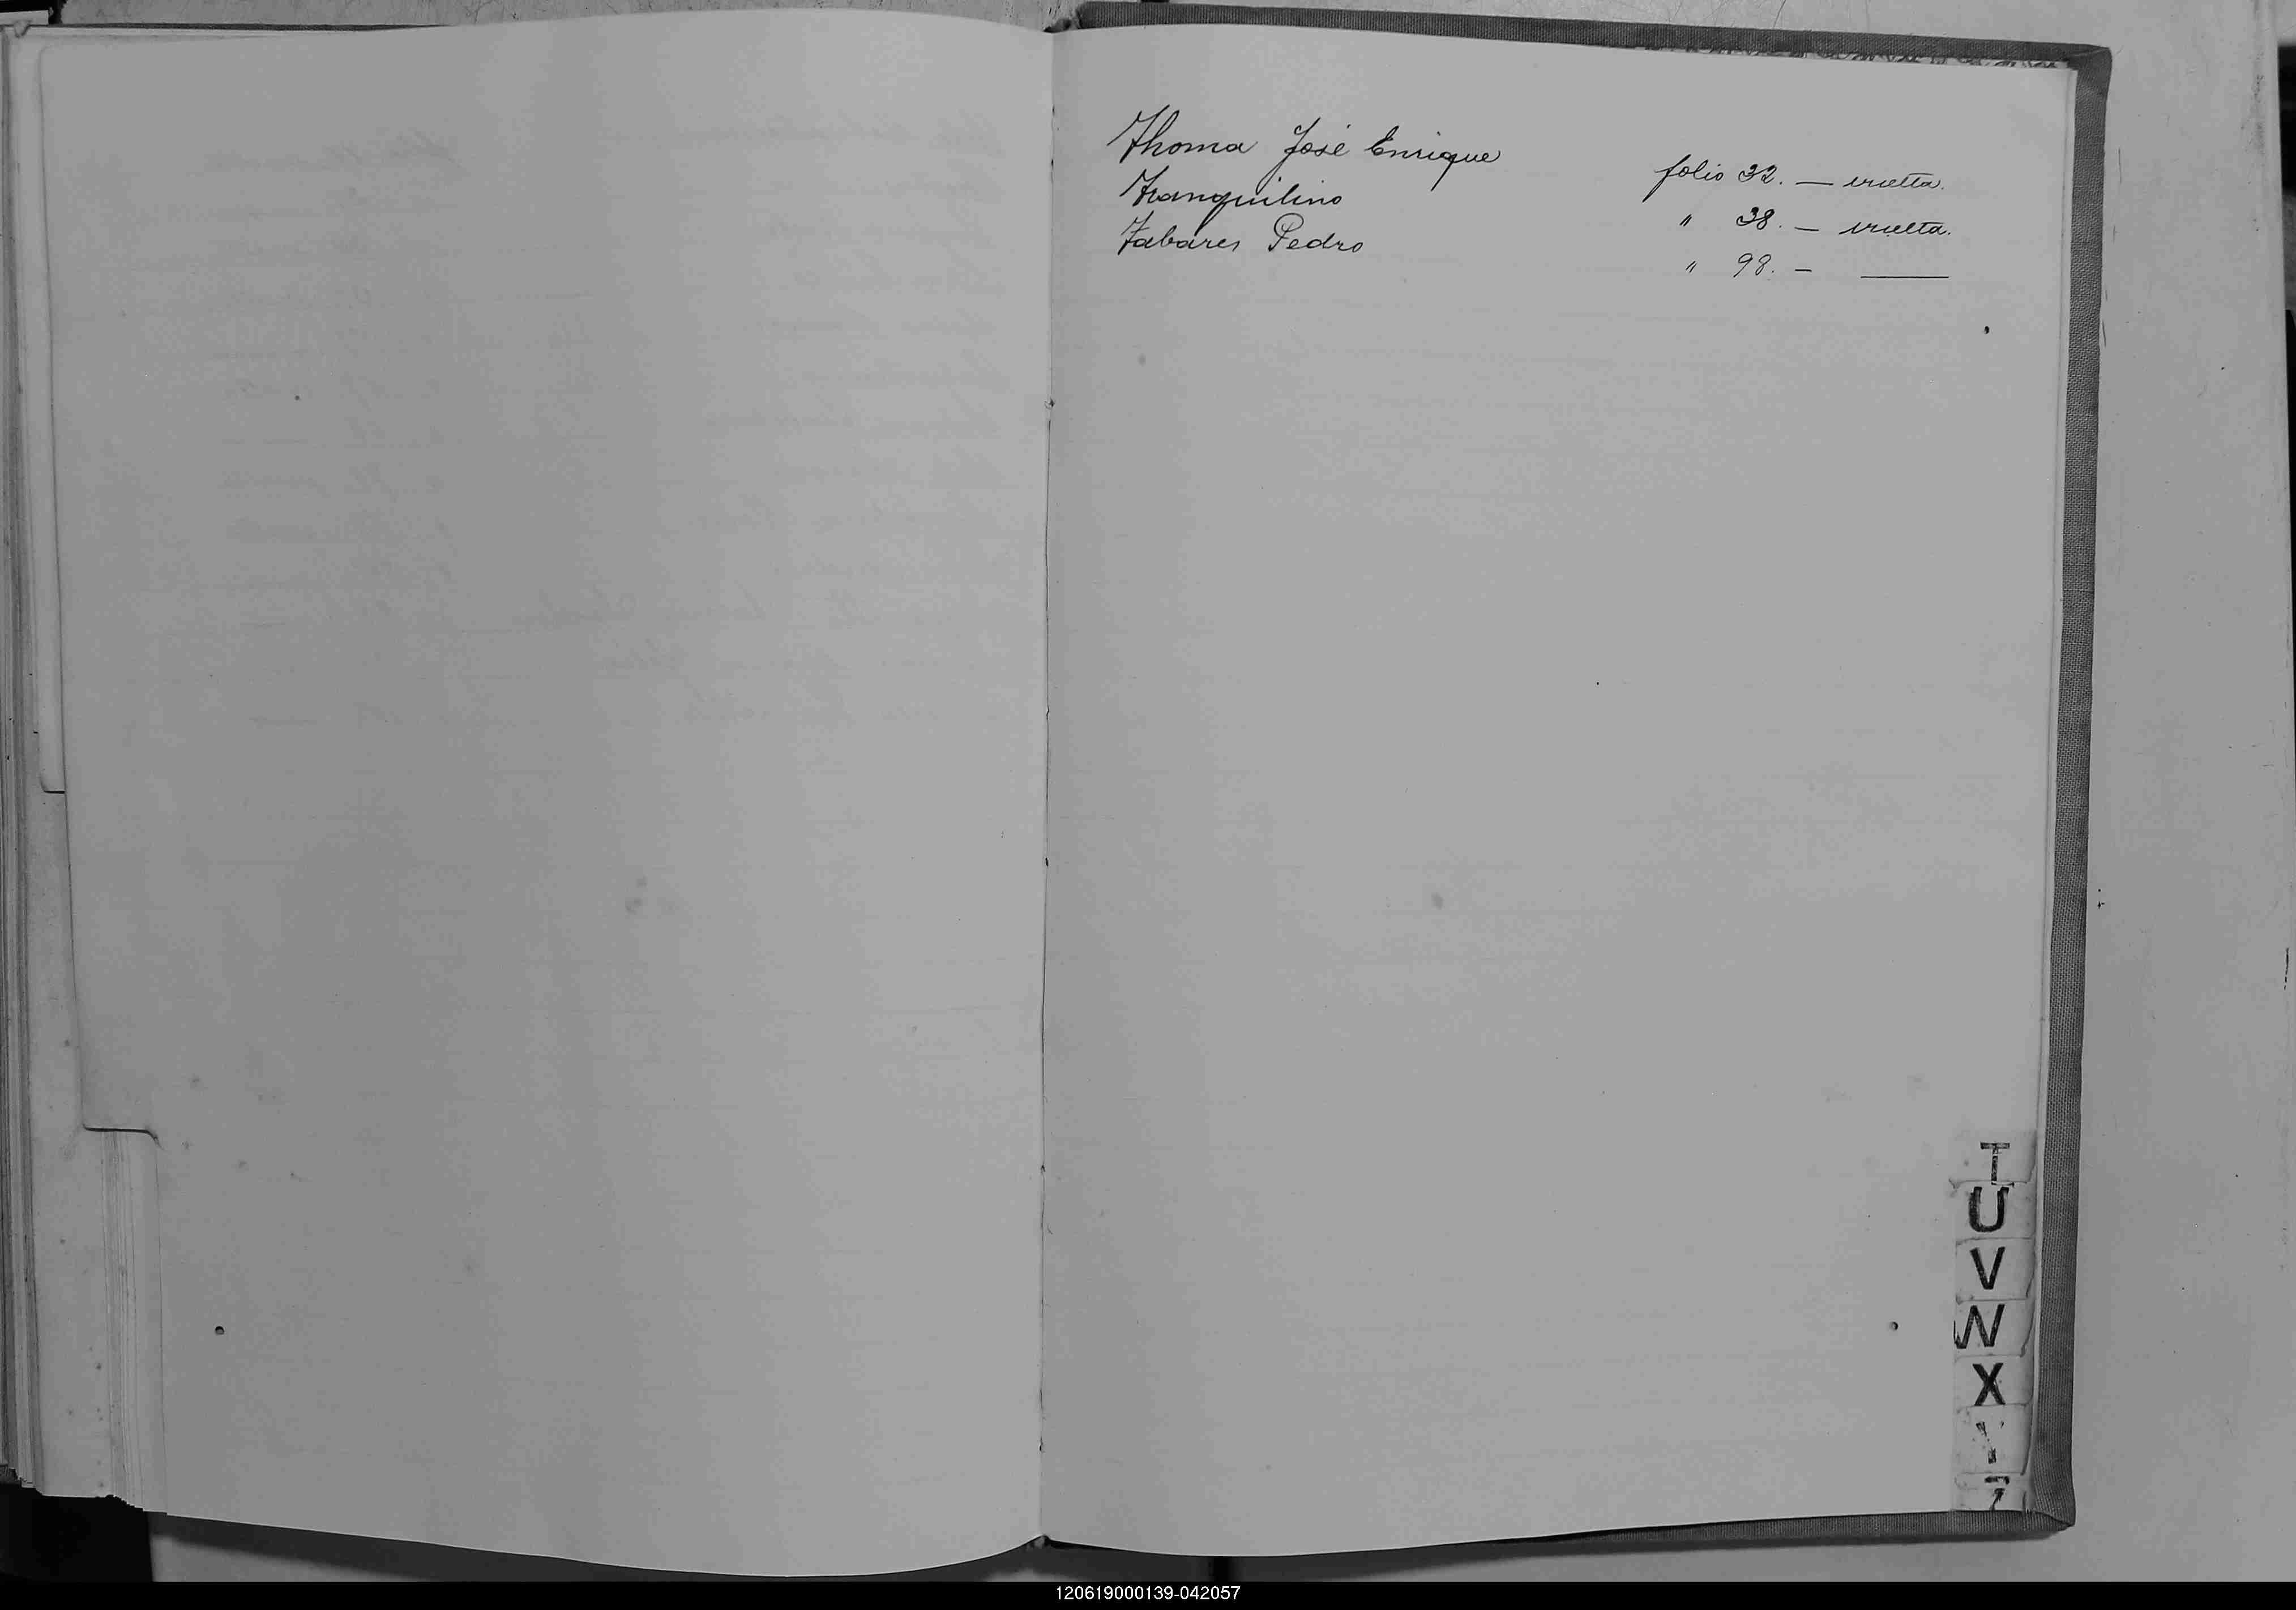 Thoma José Enrique folio 32. — vuelta.
Tranquilino " 38. — vuelta.
Tabares Pedro " 98. - ——
T
U
V
W
X
Y
Z
120619000139-042057